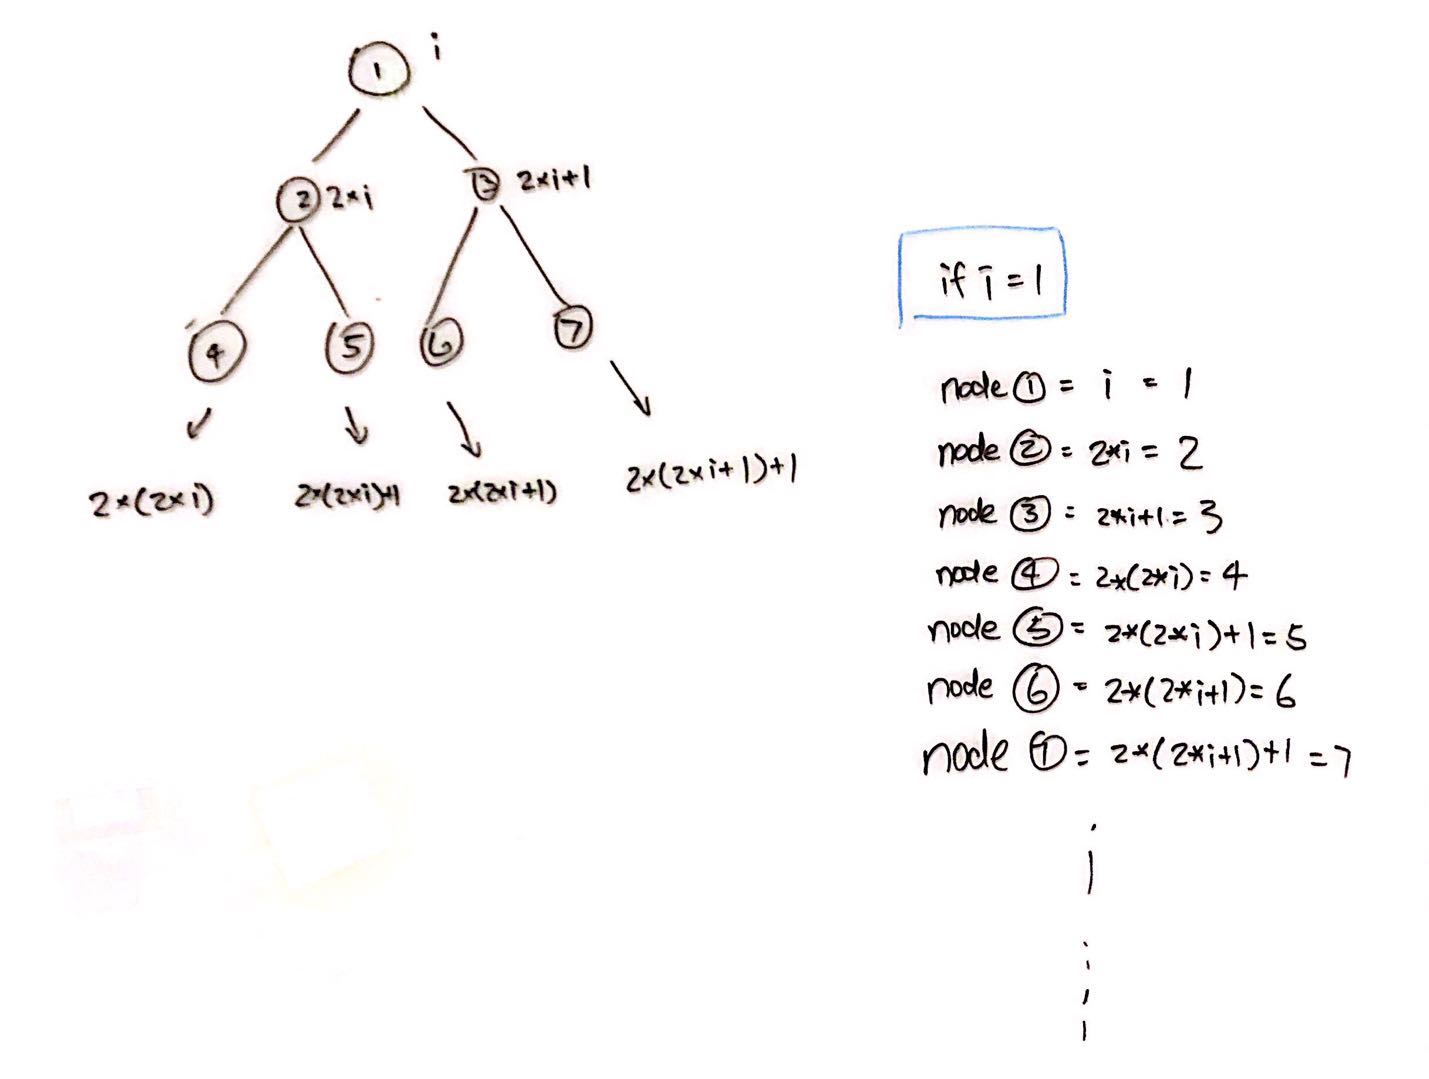 i
1
2 2*i
3 2*i+1
4 5 6 7
2*(2*i) 2*(2*i)+1 2*(2*i+1) 2*(2*i+1)+1
if i = 1
node ① = i = 1
node ② = 2*i = 2
node ③ = 2*i+1 = 3
node ④ = 2*(2*i) = 4
node ⑤ = 2*(2*i)+1 = 5
node ⑥ = 2*(2*i+1) = 6
node ⑦ = 2*(2*i+1)+1 = 7